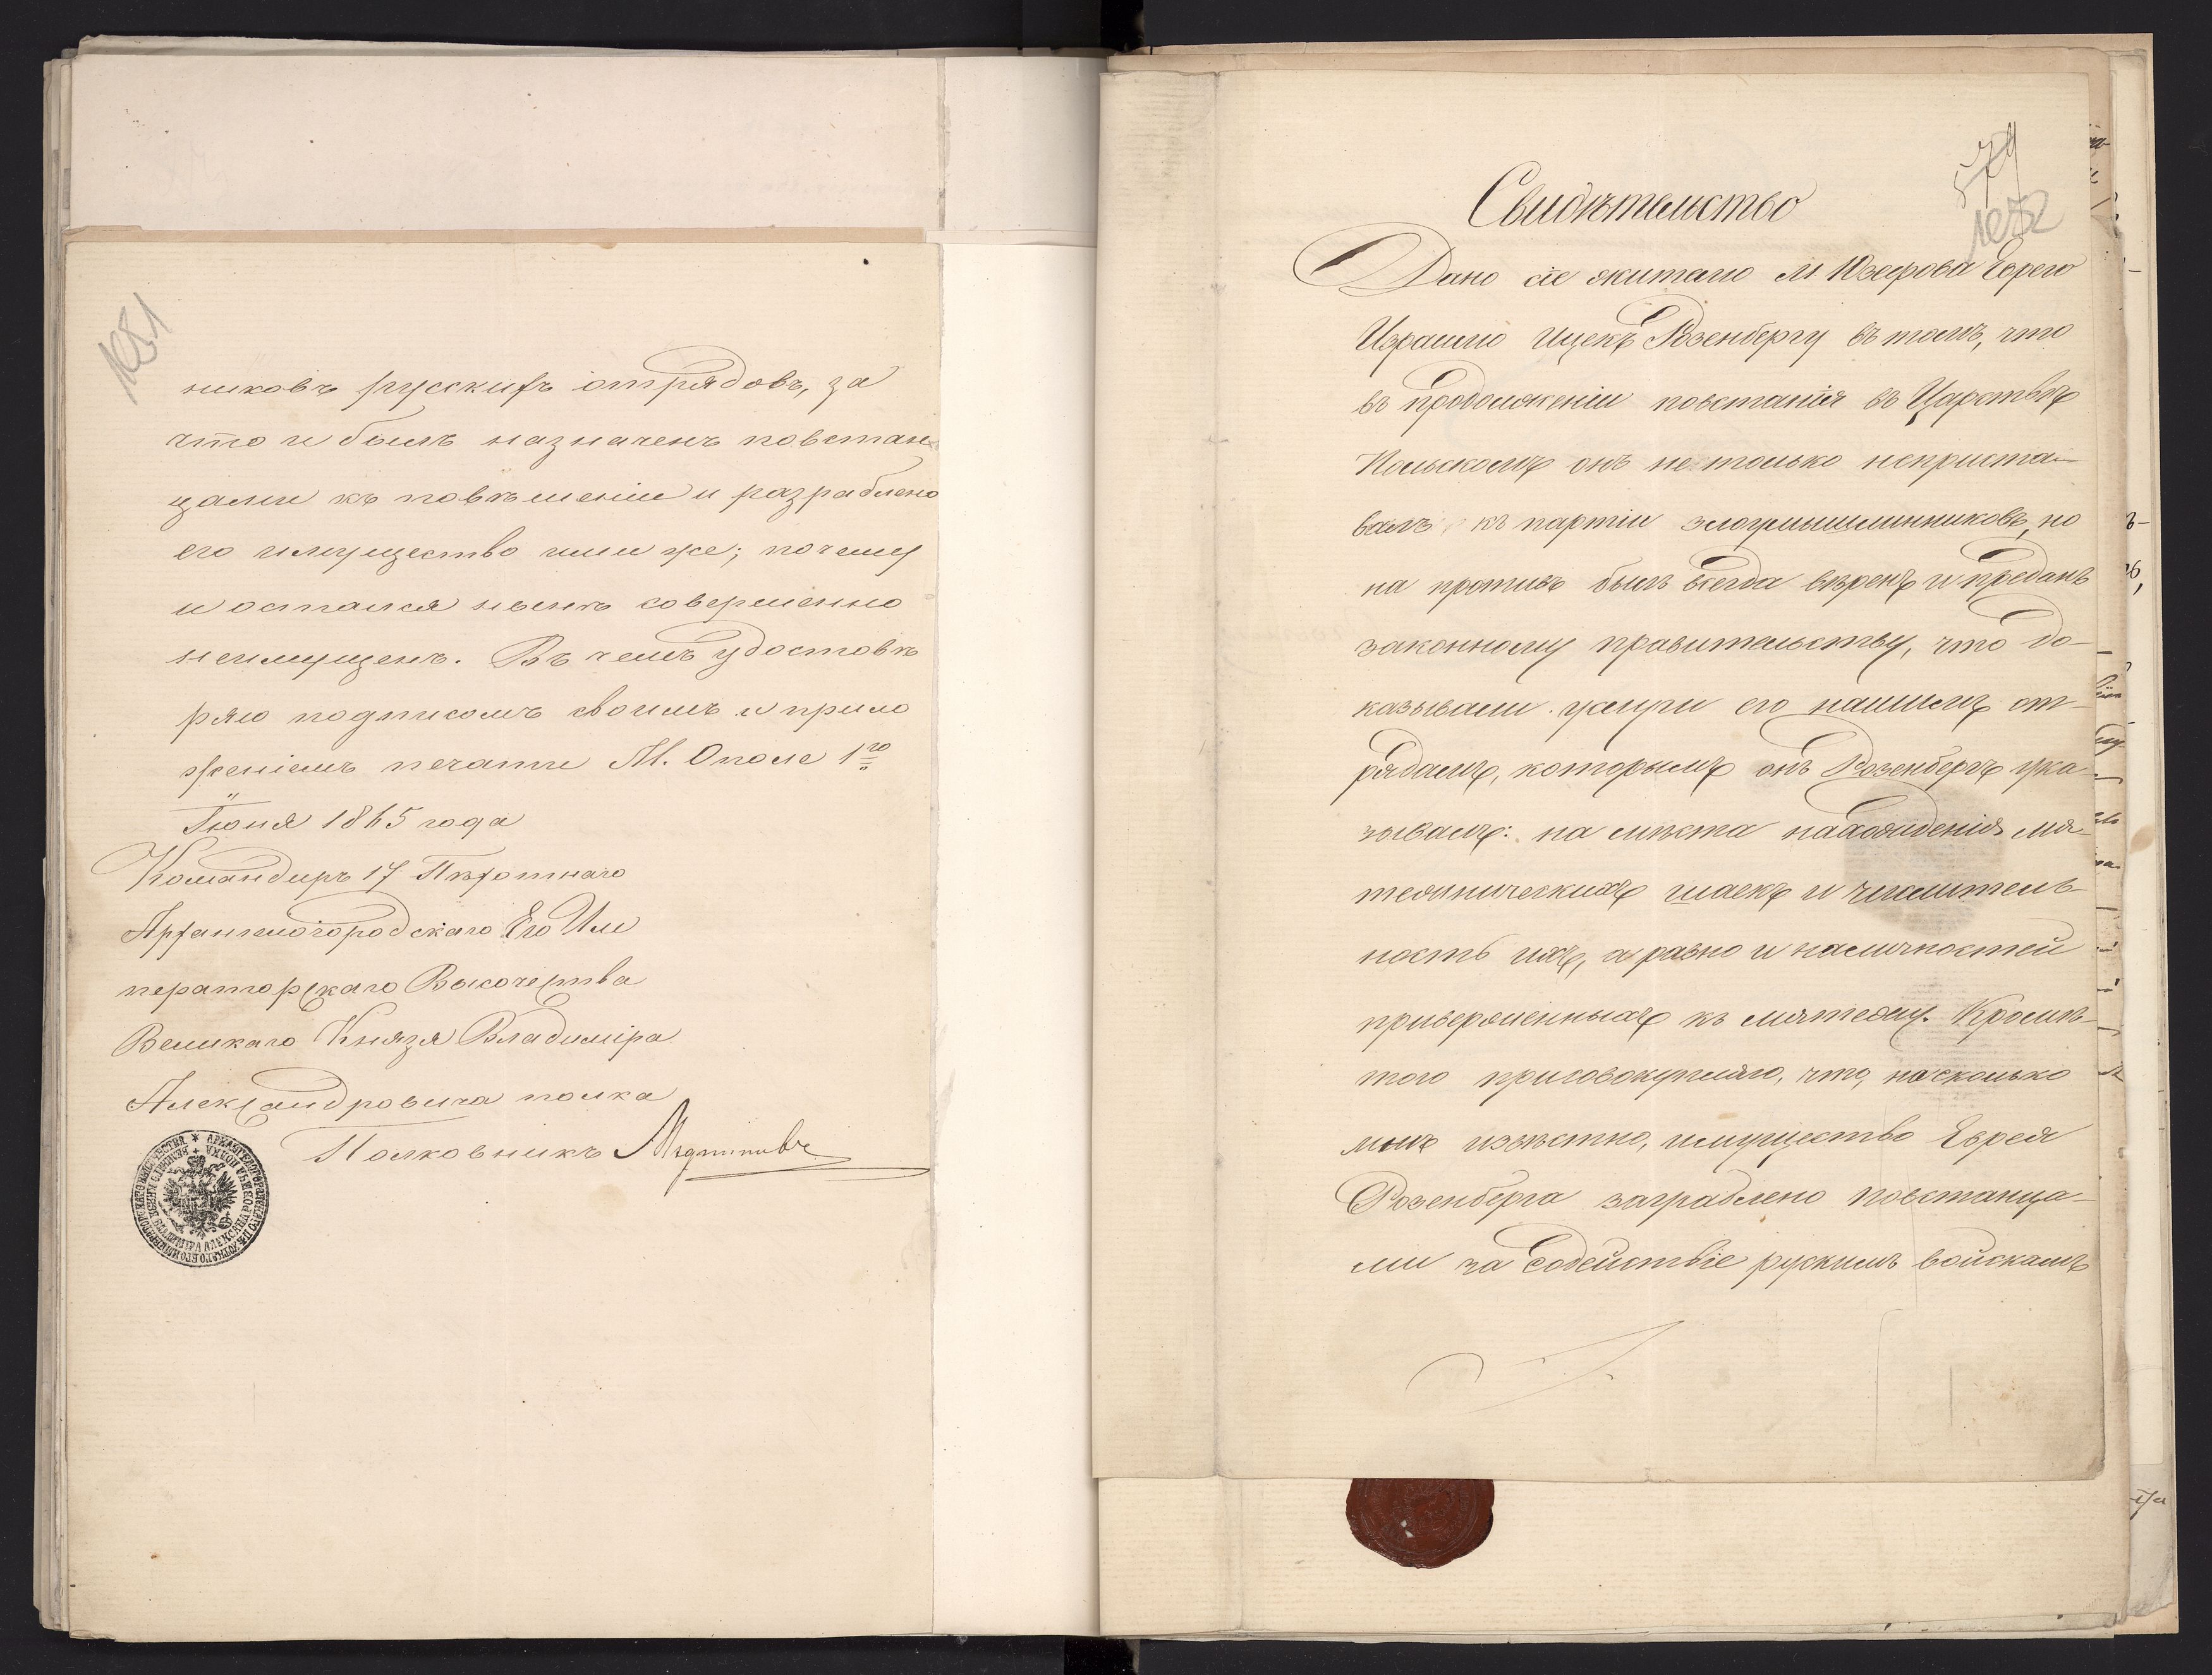 1081
никовъ русскихъ отрядовъ, за
что и былъ назначенъ повстан
цами къ повѣшенію и разграблено
его имущество ими же; почему
и остался нынѣ совершенно
неимущенъ. Въ чемъ удостовѣ
ряю подписомъ своимъ и прило
женіемъ печати М. Ополе 1го
Іюня 1865 года
Командиръ 17 Пѣхотнаго
Архангелогородскаго Его Им
ператорскаго Высочества
Великаго Князя Владиміра
Александровича полка
Полковникъ
579
1082
Свидѣтельство
Дано сіе жителю м. Юзефова Еврею
Израилю Ицекъ Розенбергу въ томъ, что
въ продолженіи повстанія въ Царствѣ
Польскомъ онъ не только неприста-
валъ къ партіи злоумышлинниковъ, но
на противъ былъ всегда вѣренъ и преданъ
законному правительству, что до-
казывали услуги его нашимъ от-
рядамъ, которымъ онъ Розенбергъ ука-
зывалъ: на мѣста нахожденія мя-
тежническихъ шаекъ и числитель-
ность ихъ, а равно и на личностей
приверженныхъ къ мятежу. Кромѣ
того присовокупляю, что, на сколько
мнѣ извѣстно, имущество Еврея
Розенберга заграблено повстанца-
ми за содействіе рускимъ войскамъ